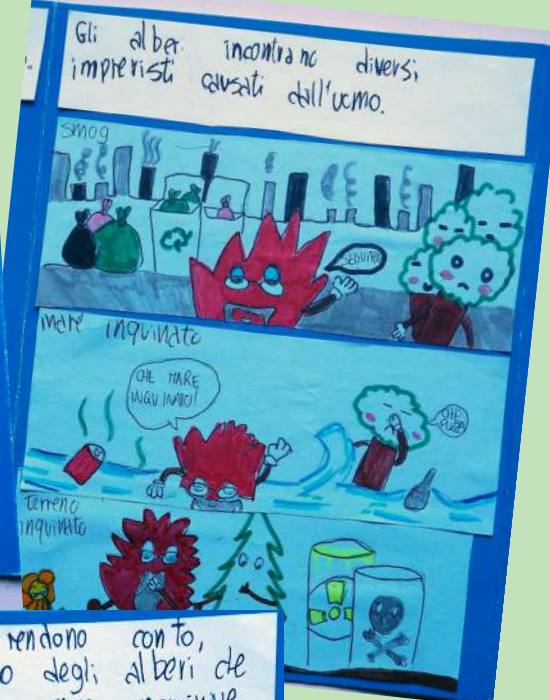 Gli alberi incontrano diversi
imprevisti causati dall'uomo.
smog
SEGUITEMI
mare inquinato
CHE MARE
INQUINATO!
CHE
PUZZA
terreno
inquinato
rendono conto,
o degli alberi che